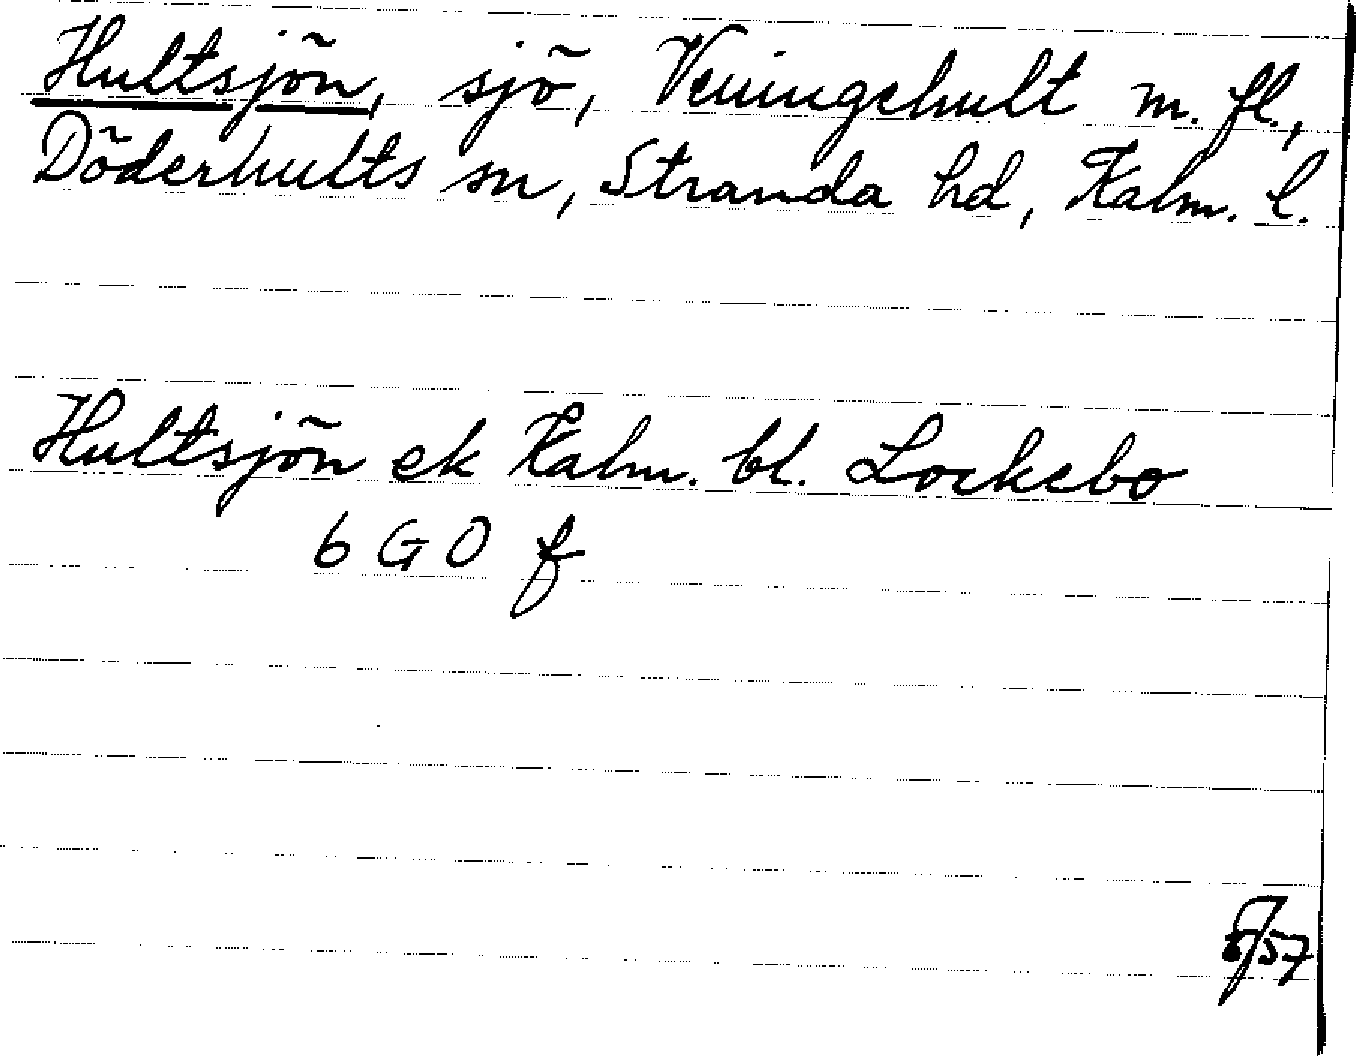 Hultsjön, sjö, Veningehult m. fl.,
Döderhults sn, Stranda hd, Kalm. l.
Hultsjön ek Kalm. bl. Lockebo
6 G O f
57